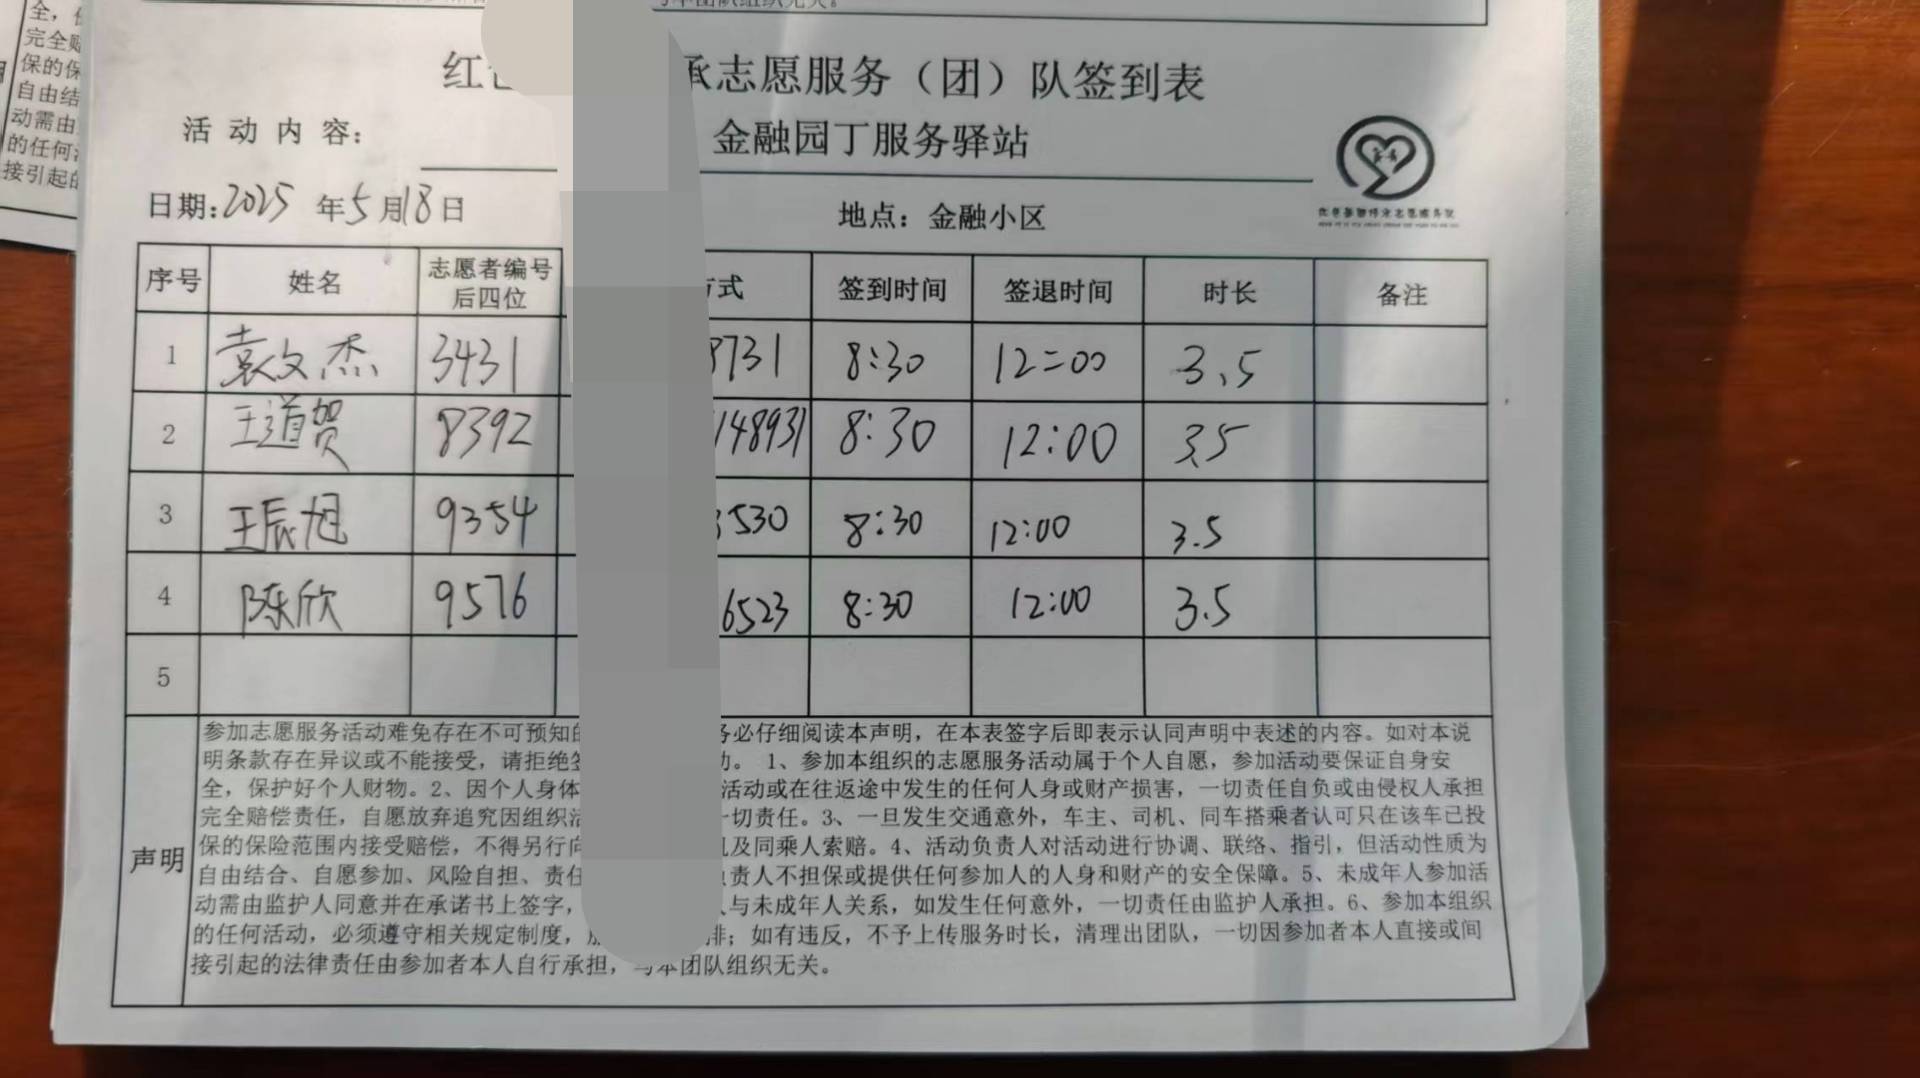 全，
完全赔
保的保
自由结
动需由
的任何
接引起的
与本团队组织无关。
红 承志愿服务（团）队签到表
活动内容： 金融园丁服务驿站
日期：2025年5月18日 地点：金融小区
序号 姓名 志愿者编号后四位 方式 签到时间 签退时间 时长 备注
1 袁文杰 3431 8731 8:30 12=00 3.5
2 王道贺 8392 148931 8:30 12:00 3.5
3 王辰旭 9354 3530 8:30 12:00 3.5
4 陈欣 9576 6523 8:30 12:00 3.5
5
声明
参加志愿服务活动难免存在不可预知的 务必仔细阅读本声明，在本表签字后即表示认同声明中表述的内容。如对本说
明条款存在异议或不能接受，请拒绝签 动。1、参加本组织的志愿服务活动属于个人自愿，参加活动要保证自身安
全，保护好个人财物。2、因个人身体 活动或在往返途中发生的任何人身或财产损害，一切责任自负或由侵权人承担
完全赔偿责任，自愿放弃追究因组织活 一切责任。3、一旦发生交通意外，车主、司机、同车搭乘者认可只在该车已投
保的保险范围内接受赔偿，不得另行向 机及同乘人索赔。4、活动负责人对活动进行协调、联络、指引，但活动性质为
自由结合、自愿参加、风险自担、责任 负责人不担保或提供任何参加人的人身和财产的安全保障。5、未成年人参加活
动需由监护人同意并在承诺书上签字， 人与未成年人关系，如发生任何意外，一切责任由监护人承担。6、参加本组织
的任何活动，必须遵守相关规定制度，服 排；如有违反，不予上传服务时长，清理出团队，一切因参加者本人直接或间
接引起的法律责任由参加者本人自行承担，与本团队组织无关。